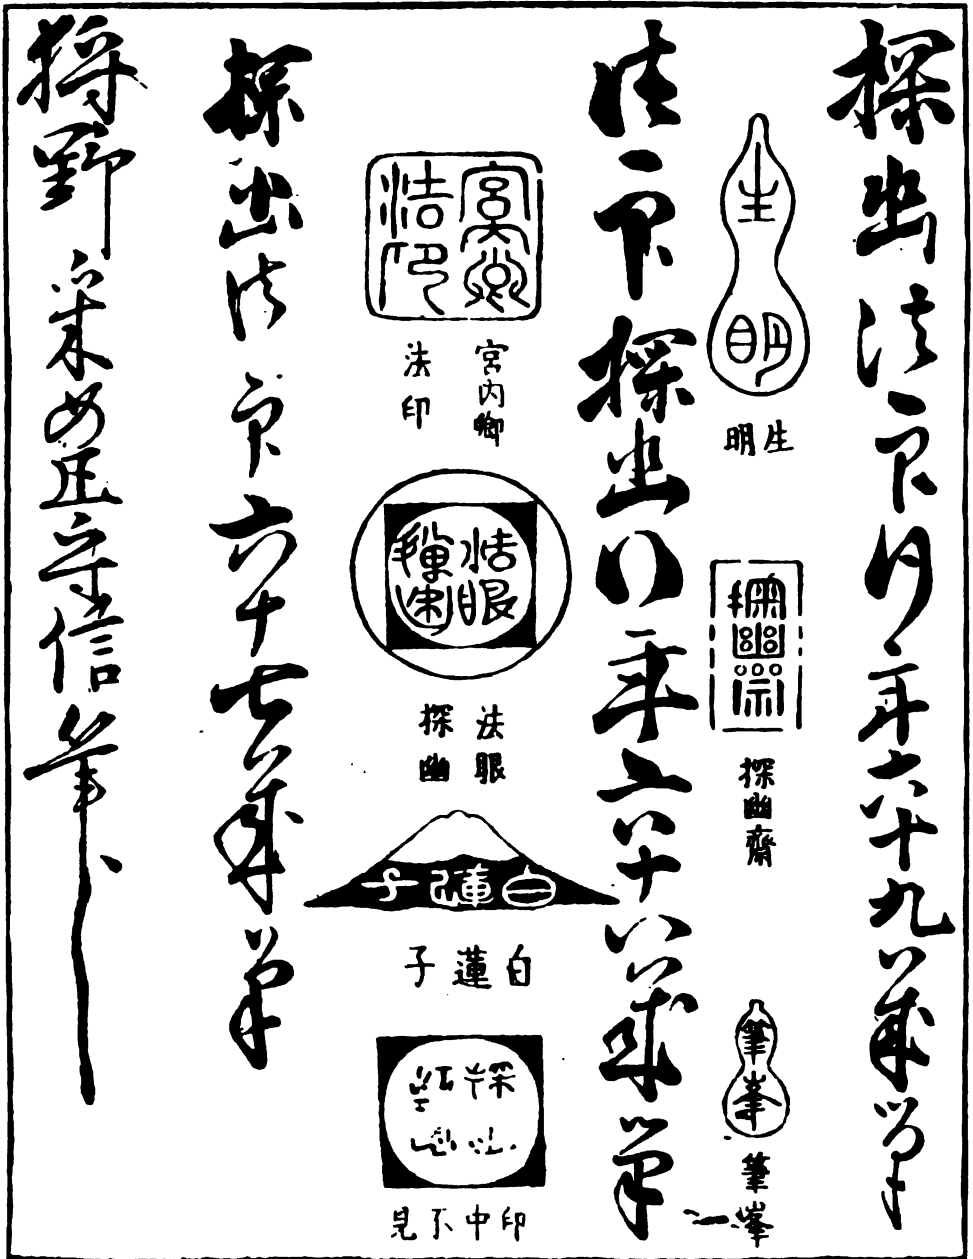 探幽法印行年六十九歳筆
生明
生明
探幽斎
探幽齋
筆峯
筆峯
法印探幽行年六十八歳筆
宮内卿
法印
宮内卿
法印
法眼
探幽
法眼
探幽
白蓮子
白蓮子
印中不見
探幽法印六十七歳筆
狩野采女正守信筆